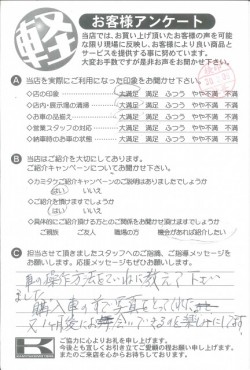 軽
お客様アンケート
当店では、お買い上げ頂いたお客様の声を可能
な限り現場に反映し、お客様により良い商品と
サービスを提供する事に努めています。
大変お手数ですが是非お声をお聞かせ下さい。
A 当店を実際にご利用になった印象をお聞かせ下さい。
◇店の印象 大満足 満足 ふつう やや不満 不満
◇店内・展示場の清掃 大満足 満足 ふつう やや不満 不満
◇お車の品揃え 大満足 満足 ふつう やや不満 不満
◇営業スタッフの対応 大満足 満足 ふつう やや不満 不満
◇納車時のお車の状態 大満足 満足 ふつう やや不満 不満
B 当店はご紹介を大切にしております。
ご紹介キャンペーンについてお聞かせ下さい。
◇カミタケご紹介キャンペーンのご説明はありましたでしょうか
はい いいえ
◇ご紹介を頂けますでしょうか
はい いいえ
◇具体的にご紹介頂ける方とのご関係をお聞かせ頂けますでしょうか
ご親族 ご友人 職場の方 機会があれば紹介したい
C 担当させて頂きましたスタッフへのご指摘、ご指導メッセージを
お願いします。応援メッセージもぜひお願いします。
車の操作方法をていねいに教えて下さい
ました
購入車のすぐ写真をとってくれた
又1ヶ月後にお会いできるのを楽しみにしてます
ご協力に心よりお礼を申し上げます。
今後とも宜しくお引き立てご愛顧の程お願い申し上げます。
またのご来店を心からお待ちしております。
K